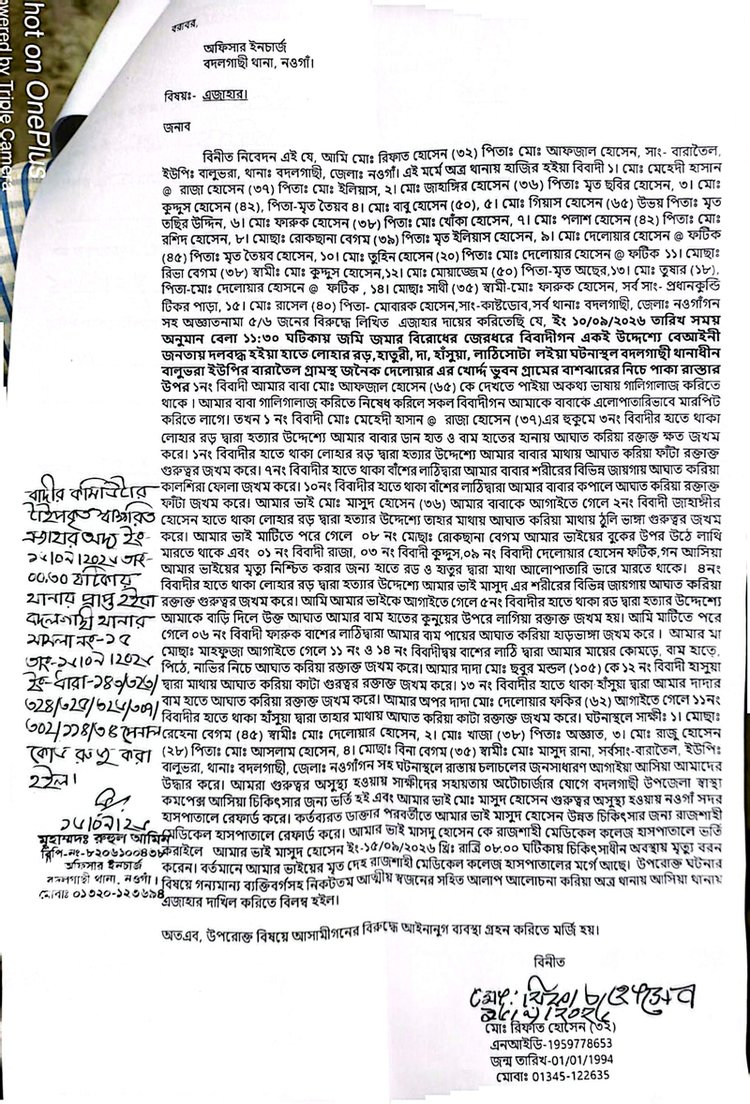 Shot on OnePlus
Powered by Triple Camera
বরাবর,
অফিসার ইনচার্জ
বদলগাছী থানা, নওগাঁ।
বিষয়ঃ- এজাহার।
জনাব
বিনীত নিবেদন এই যে, আমি মোঃ রিফাত হোসেন (৩২) পিতাঃ মোঃ আফজাল হোসেন, সাং- বারাতৈল,
ইউপিঃ বালুভরা, থানাঃ বদলগাছী, জেলাঃ নওগাঁ। এই মর্মে অত্র থানায় হাজির হইয়া বিবাদী ১। মোঃ মেহেদী হাসান
@ রাজা হোসেন (৩৭) পিতাঃ মোঃ ইলিয়াস, ২। মোঃ জাহাঙ্গির হোসেন (৩৬) পিতাঃ মৃত ছবির হোসেন, ৩। মোঃ
কুদ্দুস হোসেন (৪২), পিতা-মৃত তৈয়ব ৪। মোঃ বাবু হোসেন (৫০), ৫। মোঃ গিয়াস হোসেন (৬৫) উভয় পিতাঃ মৃত
তছির উদ্দিন, ৬। মোঃ ফারুক হোসেন (৩৮) পিতাঃ মোঃ খোঁকা হোসেন, ৭। মোঃ পলাশ হোসেন (৪২) পিতাঃ মোঃ
রশিদ হোসেন, ৮। মোছাঃ রোকছানা বেগম (৩৯) পিতাঃ মৃত ইলিয়াস হোসেন, ৯। মোঃ দেলোয়ার হোসেন @ ফটিক
(৪৫) পিতাঃ মৃত তৈয়ব হোসেন, ১০। মোঃ তুহিন হোসেন (২০) পিতাঃ মোঃ দেলোয়ার হোসেন @ ফটিক ১১। মোছাঃ
রিভা বেগম (৩৮) স্বামীঃ মোঃ কুদ্দুস হোসেন,১২। মোঃ মোয়াজ্জেম (৫০) পিতা-মৃত অছের,১৩। মোঃ তুষার (১৮),
পিতা-মোঃ দেলোয়ার হোসনে @ ফটিক , ১৪। মোছাঃ সাথী (৩৫) স্বামী-মোঃ ফারুক হোসেন, সর্ব সাং- প্রধানকুন্ডি
টিকর পাড়া, ১৫। মোঃ রাসেল (৪০) পিতা- মোবারক হোসেন,সাং-কাষ্টডোব,সর্ব থানাঃ বদলগাছী, জেলাঃ নওগাঁগন
সহ অজ্ঞাতনামা ৫/৬ জনের বিরুদ্ধে লিখিত এজাহার দায়ের করিতেছি যে, ইং ১০/০৯/২০২৬ তারিখ সময়
অনুমান বেলা ১১:৩০ ঘটিকায় জমি জমার বিরোধের জেরধরে বিবাদীগন একই উদ্দেশ্যে বেআইনী
জনতায় দলবদ্ধ হইয়া হাতে লোহার রড়,হাতুরী, দা, হাঁসুয়া, লাঠিসোটা লইয়া ঘটনাস্থল বদলগাছী থানাধীন
বালুভরা ইউপির বারাতৈল গ্রামস্থ জনৈক দেলোয়ার এর খোর্দ্দ ভুবন গ্রামের বাশঝারের নিচে পাকা রাস্তার
উপর ১নং বিবাদী আমার বাবা মোঃ আফজাল হোসেন (৬৫) কে দেখতে পাইয়া অকথ্য ভাষায় গালিগালাজ করিতে
থাকে । আমার বাবা গালিগালাজ করিতে নিষেধ করিলে সকল বিবাদীগন আমাকে বাবাকে এলোপাতারিভাবে মারপিট
করিতে লাগে। তখন ১ নং বিবাদী মোঃ মেহেদী হাসান @ রাজা হোসেন (৩৭)এর হুকুমে ৩নং বিবাদীর হাতে থাকা
লোহার রড় দ্বারা হত্যার উদ্দেশ্যে আমার বাবার ডান হাত ও বাম হাতের হানায় আঘাত করিয়া রক্তাক্ত ক্ষত জখম
করে। ১নং বিবাদীর হাতে থাকা লোহার রড় দ্বারা হত্যার উদ্দেশ্যে আমার বাবার মাথায় আঘাত করিয়া ফাঁটা রক্তাক্ত
গুরুত্বর জখম করে। ৭নং বিবাদীর হাতে থাকা বাঁশের লাঠিদ্বারা আমার বাবার শরীরের বিভিন্ন জায়গায় আঘাত করিয়া
কালশিরা ফোলা জখম করে। ১০নং বিবাদীর হাতে থাকা বাঁশের লাঠিদ্বারা আমার বাবার কপালে আঘাত করিয়া রক্তাক্ত
ফাঁটা জখম করে। আমার ভাই মোঃ মাসুদ হোসেন (৩৬) আমার বাবাকে আগাইতে গেলে ২নং বিবাদী জাহাঙ্গীর
হোসেন হাতে থাকা লোহার রড় দ্বারা হত্যার উদ্দেশ্যে তাহার মাথায় আঘাত করিয়া মাথার ঠুলি ভাঙ্গা গুরুত্বর জখম
করে। আমার ভাই মাটিতে পরে গেলে ০৮ নং মোছাঃ রোকছানা বেগম আমার ভাইয়ের বুকের উপর উঠে লাথি
মারতে থাকে এবং ০১ নং বিবাদী রাজা, ০৩ নং বিবাদী কুদ্দুস,০৯ নং বিবাদী দেলোয়ার হোসেন ফটিক,গন আসিয়া
আমার ভাইয়ের মৃত্যু নিশ্চিত করার জন্য হাতে রড় ও হাতুর দ্বারা মাথা আলোপাতারি ভাবে মারতে থাকে। ৪নং
বিবাদীর হাতে থাকা লোহার রড় দ্বারা হত্যার উদ্দেশ্যে আমার ভাই মাসুদ এর শরীরের বিভিন্ন জায়গায় আঘাত করিয়া
রক্তাক্ত গুরুত্বর জখম করে। আমি আমার ভাইকে আগাইতে গেলে ৫নং বিবাদীর হাতে থাকা রড় দ্বারা হত্যার উদ্দেশ্যে
আমাকে বাড়ি দিলে উক্ত আঘাত আমার বাম হাতের কুনুয়ের উপরে লাগিয়া রক্তাক্ত জখম হয়। আমি মাটিতে পরে
গেলে ০৬ নং বিবাদী ফারুক বাশের লাঠিদ্বারা আমার বাম পায়ের আঘাত করিয়া হাড়ভাঙ্গা জখম করে । আমার মা
মোছাঃ মাহফুজা আগাইতে গেলে ১১ নং ও ১৪ নং বিবাদীদ্বয় বাশের লাঠি দ্বারা আমার মায়ের কোমড়ে, বাম হাতে,
পিঠে, নাভির নিচে আঘাত করিয়া রক্তাক্ত জখম করে। আমার দাদা মোঃ ছবুর মন্ডল (১০৫) কে ১২ নং বিবাদী হাসুয়া
দ্বারা মাথায় আঘাত করিয়া কাটা গুরত্বর জখম করে। ১৩ নং বিবাদীর হাতে থাকা হাঁসুয়া দ্বারা আমার দাদার
বাম হাতে আঘাত করিয়া রক্তাক্ত জখম করে। আমার অপর দাদা মোঃ দেলোয়ার ফকির (৬২) আগাইতে গেলে ১১নং
বিবাদীর হাতে থাকা হাঁসুয়া দ্বারা তাহার মাথায় আঘাত করিয়া কাটা রক্তাক্ত জখম করে। ঘটনাস্থলে সাক্ষীঃ ১। মোছাঃ
রেহেনা (৪৫) স্বামীঃ মোঃ দেলোয়ার হোসেন, ২। মোঃ খাজা (৩৮) পিতাঃ অজ্ঞাত, ৩। মোঃ রাজু হোসেন
(২৮) পিতাঃ মোঃ আসলাম হোসেন, ৪। মোছাঃ বিনা বেগম (৩৫) স্বামীঃ মোঃ মাসুদ রানা, সর্বসাং-বারাতৈল, ইউপিঃ
বালুভরা, থানাঃ বদলগাছী, জেলাঃ নওগাঁগন সহ ঘটনাস্থলে রাস্তায় চলাচলের জনসাধারণ আগাইয়া আসিয়া আমাদের
উদ্ধার করে। আমরা গুরুত্বর অসুস্থ্য হওয়ায় সাক্ষীদের সহায়তায় অটোচার্জার যোগে বদলগাছী উপজেলা স্বাস্থ্য
কমপেক্স আসিয়া চিকিৎসার জন্য ভর্তি হই এবং আমার ভাই মোঃ মাসুদ হোসেন গুরুত্বর অসুস্থ্য হওয়ায় নওগাঁ সদর
হাসপাতালে রেফার্ড করে। কর্তব্যরত ডাক্তার পরবর্তীতে আমার ভাই মোঃ মাসুদ হোসেন উন্নত চিকিৎসার জন্য রাজশাহী
মেডিকেল হাসপাতালে রেফার্ড করে। আমার ভাই মাসদু হোসেন কে রাজশাহী মেডিকেল কলেজ হাসপাতালে ভর্তি
করাইলে আমার ভাই মাসুদ হোসেন ইং-১৫/০৯/২০২৬ খ্রিঃ রাত্রি ০৮.০০ ঘটিকায় চিকিৎসাধীন অবস্থায় মৃত্যু বরন
করেন। বর্তমানে আমার ভাইয়ের মৃত দেহ রাজশাহী মেডিকেল কলেজ হাসপাতালের মর্গে আছে। উপরোক্ত ঘটনার
বিষয়ে গন্যমান্য ব্যক্তিবর্গসহ নিকটতম আত্মীয় স্বজনের সহিত আলাপ আলোচনা করিয়া অত্র থানায় আসিয়া থানায়
এজাহার দাখিল করিতে বিলম্ব হইল।
অতএব, উপরোক্ত বিষয়ে আসামীগনের বিরুদ্ধে আইনানুগ ব্যবস্থা গ্রহন করিতে মর্জি হয়।
বিনীত
মোঃ রিফাত হোসেন
মোঃ রিফাত হোসেন (৩২)
এনআইডি-1959778653
জন্ম তারিখ-01/01/1994
মোবাঃ 01345-122635
বাদীর কম্পিউটার
টাইপকৃত স্বাক্ষরিত
এজাহার অদ্য ইং-
থানায় প্রাপ্ত হইয়া
বদলগাছী থানার
মামলা নং-১৫
ইং-ধারা-১৪৩/৩২৩/
৩০২/১১৪/৩৪ পেনাল
কোড রুজু করা
হইল।
মুহাম্মদঃ রুহুল আমিন
বিপি-নং-৮২০৬১০০৪৩৮
অফিসার ইনচার্জ
বদলগাছী থানা, নওগাঁ।
মোবাঃ ০১৩২০-১২৩৬৯৪